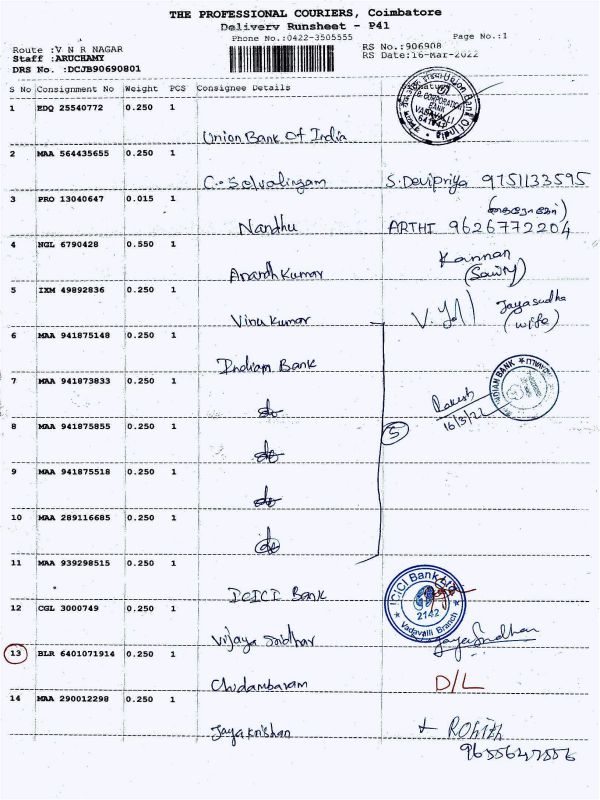 THE PROFESSIONAL COURIERS, Coimbatore
Delivery Runsheet - P41
Phone No.:0422-3505555
Page No.:1
Route :V N R NAGAR
RS No.:906908
Staff :ARUCHAMY
RS Date:16-Mar-2022
DRS No. :DCJB90690801
S No Consignment No Weight PCS Consignee Details
1 EDQ 25540772 0.250 1
Union Bank Of India
CORPORATION BANK VADAVALLI Union Bank of India
2 MAA 564435655 0.250 1
C. Selvalingam S. Devipriya 9751133595
3 PRO 13040647 0.015 1
Nandhu ARTHI 9626772204
4 NGL 6790428 0.550 1
Anandh Kumar Kannan
5 IXM 49892836 0.250 1
Vinu Kumar Jayasudha
(wife)
6 MAA 941875148 0.250 1
Indian Bank
INDIAN BANK
7 MAA 941873833 0.250 1
do
Rakesh
16/3/22
8 MAA 941875855 0.250 1
do
5
9 MAA 941875518 0.250 1
do
10 MAA 289116685 0.250 1
do
11 MAA 939298515 0.250 1
ICICI Bank
ICICI Bank Ltd 2142 Vadavalli Branch
12 CGL 3000749 0.250 1
Vijaya Sridhar
13 BLR 6401071914 0.250 1
Chidambaram D/L
14 MAA 290012298 0.250 1
Jayakrishan Rohith